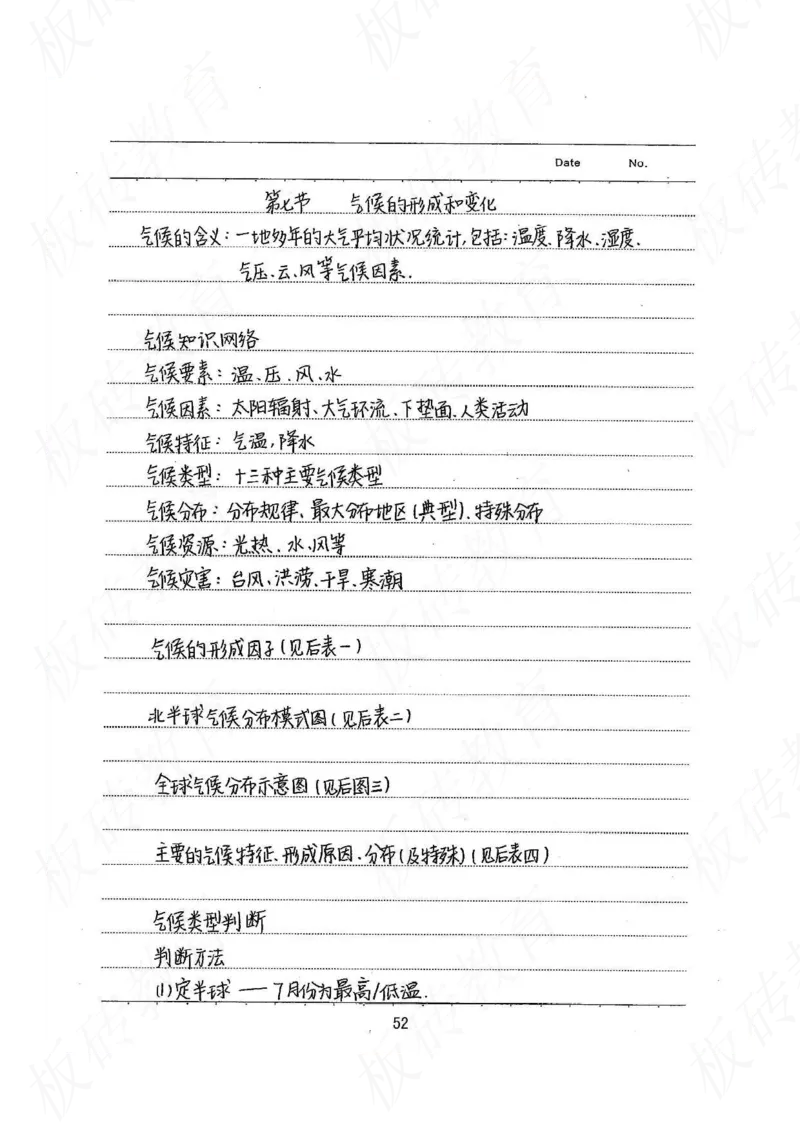 Date No.
第七节 气候的形成和变化
气候的含义:一地多年的大气平均状况统计,包括:温度、降水、湿度、
气压、云、风等气候因素.
气候知识网络
气候要素:温、压、风、水
气候因素:太阳辐射、大气环流、下垫面、人类活动
气候特征:气温,降水
气候类型:十三种主要气候类型
气候分布:分布规律、最大分布地区(典型)、特殊分布
气候资源:光热、水、风等
气候灾害:台风、洪涝、干旱、寒潮
气候的形成因子(见后表一)
北半球气候分布模式图(见后表二)
全球气候分布示意图(见后图三)
主要的气候特征、形成原因、分布(及特殊)(见后表四)
气候类型判断
判断方法
(1)定半球——7月份为最高/低温.
52
板砖教育